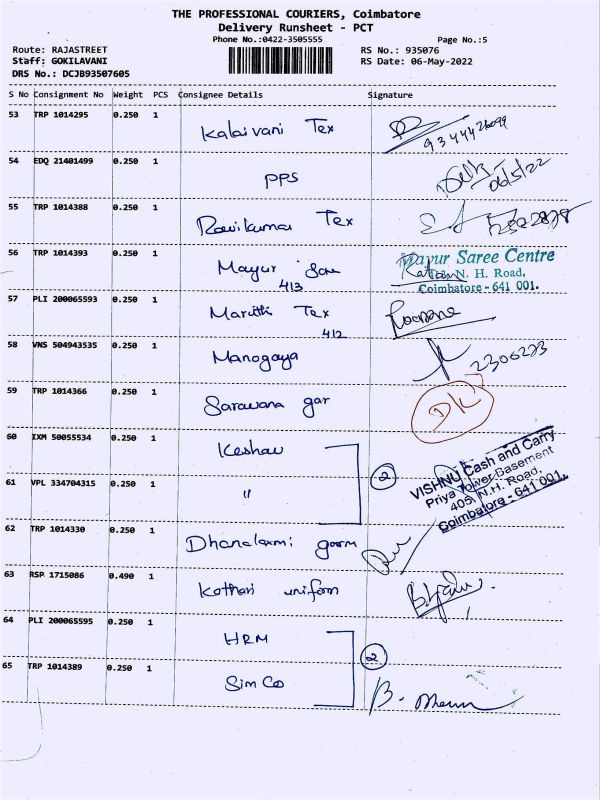 THE PROFESSIONAL COURIERS, Coimbatore
Delivery Runsheet - PCT
Phone No.:0422-3505555 Page No.:5
Route: RAJASTREET RS No.: 935076
Staff: GOKILAVANI RS Date: 06-May-2022
DRS No.: DCJB93507605
S No Consignment No Weight PCS Consignee Details Signature
53 TRP 1014295 0.250 1 Kalaivani Tex
54 EDQ 21401499 0.250 1 PPS 06/5/22
55 TRP 1014388 0.250 1 Ravikumar Tex
56 TRP 1014393 0.250 1 Mayur 413 Mayur Saree Centre
N. H. Road,
Coimbatore - 641 001.
57 PLI 200065593 0.250 1 Maruthi Tex 412
58 VNS 504943535 0.250 1 Manogaya
59 TRP 1014366 0.250 1 Sarawana gar DK
60 IXM 50055534 0.250 1 Keshav
61 VPL 334704315 0.250 1 " 2 VISHNU Cash and Carry
Priya Tower Basement
405, N.H. Road,
Coimbatore - 641 001.
62 TRP 1014330 0.250 1 Dhanalaxmi
63 RSP 1715086 0.490 1 Kothari uniform
64 PLI 200065595 0.250 1 HRM 2
65 TRP 1014389 0.250 1 Sim Co